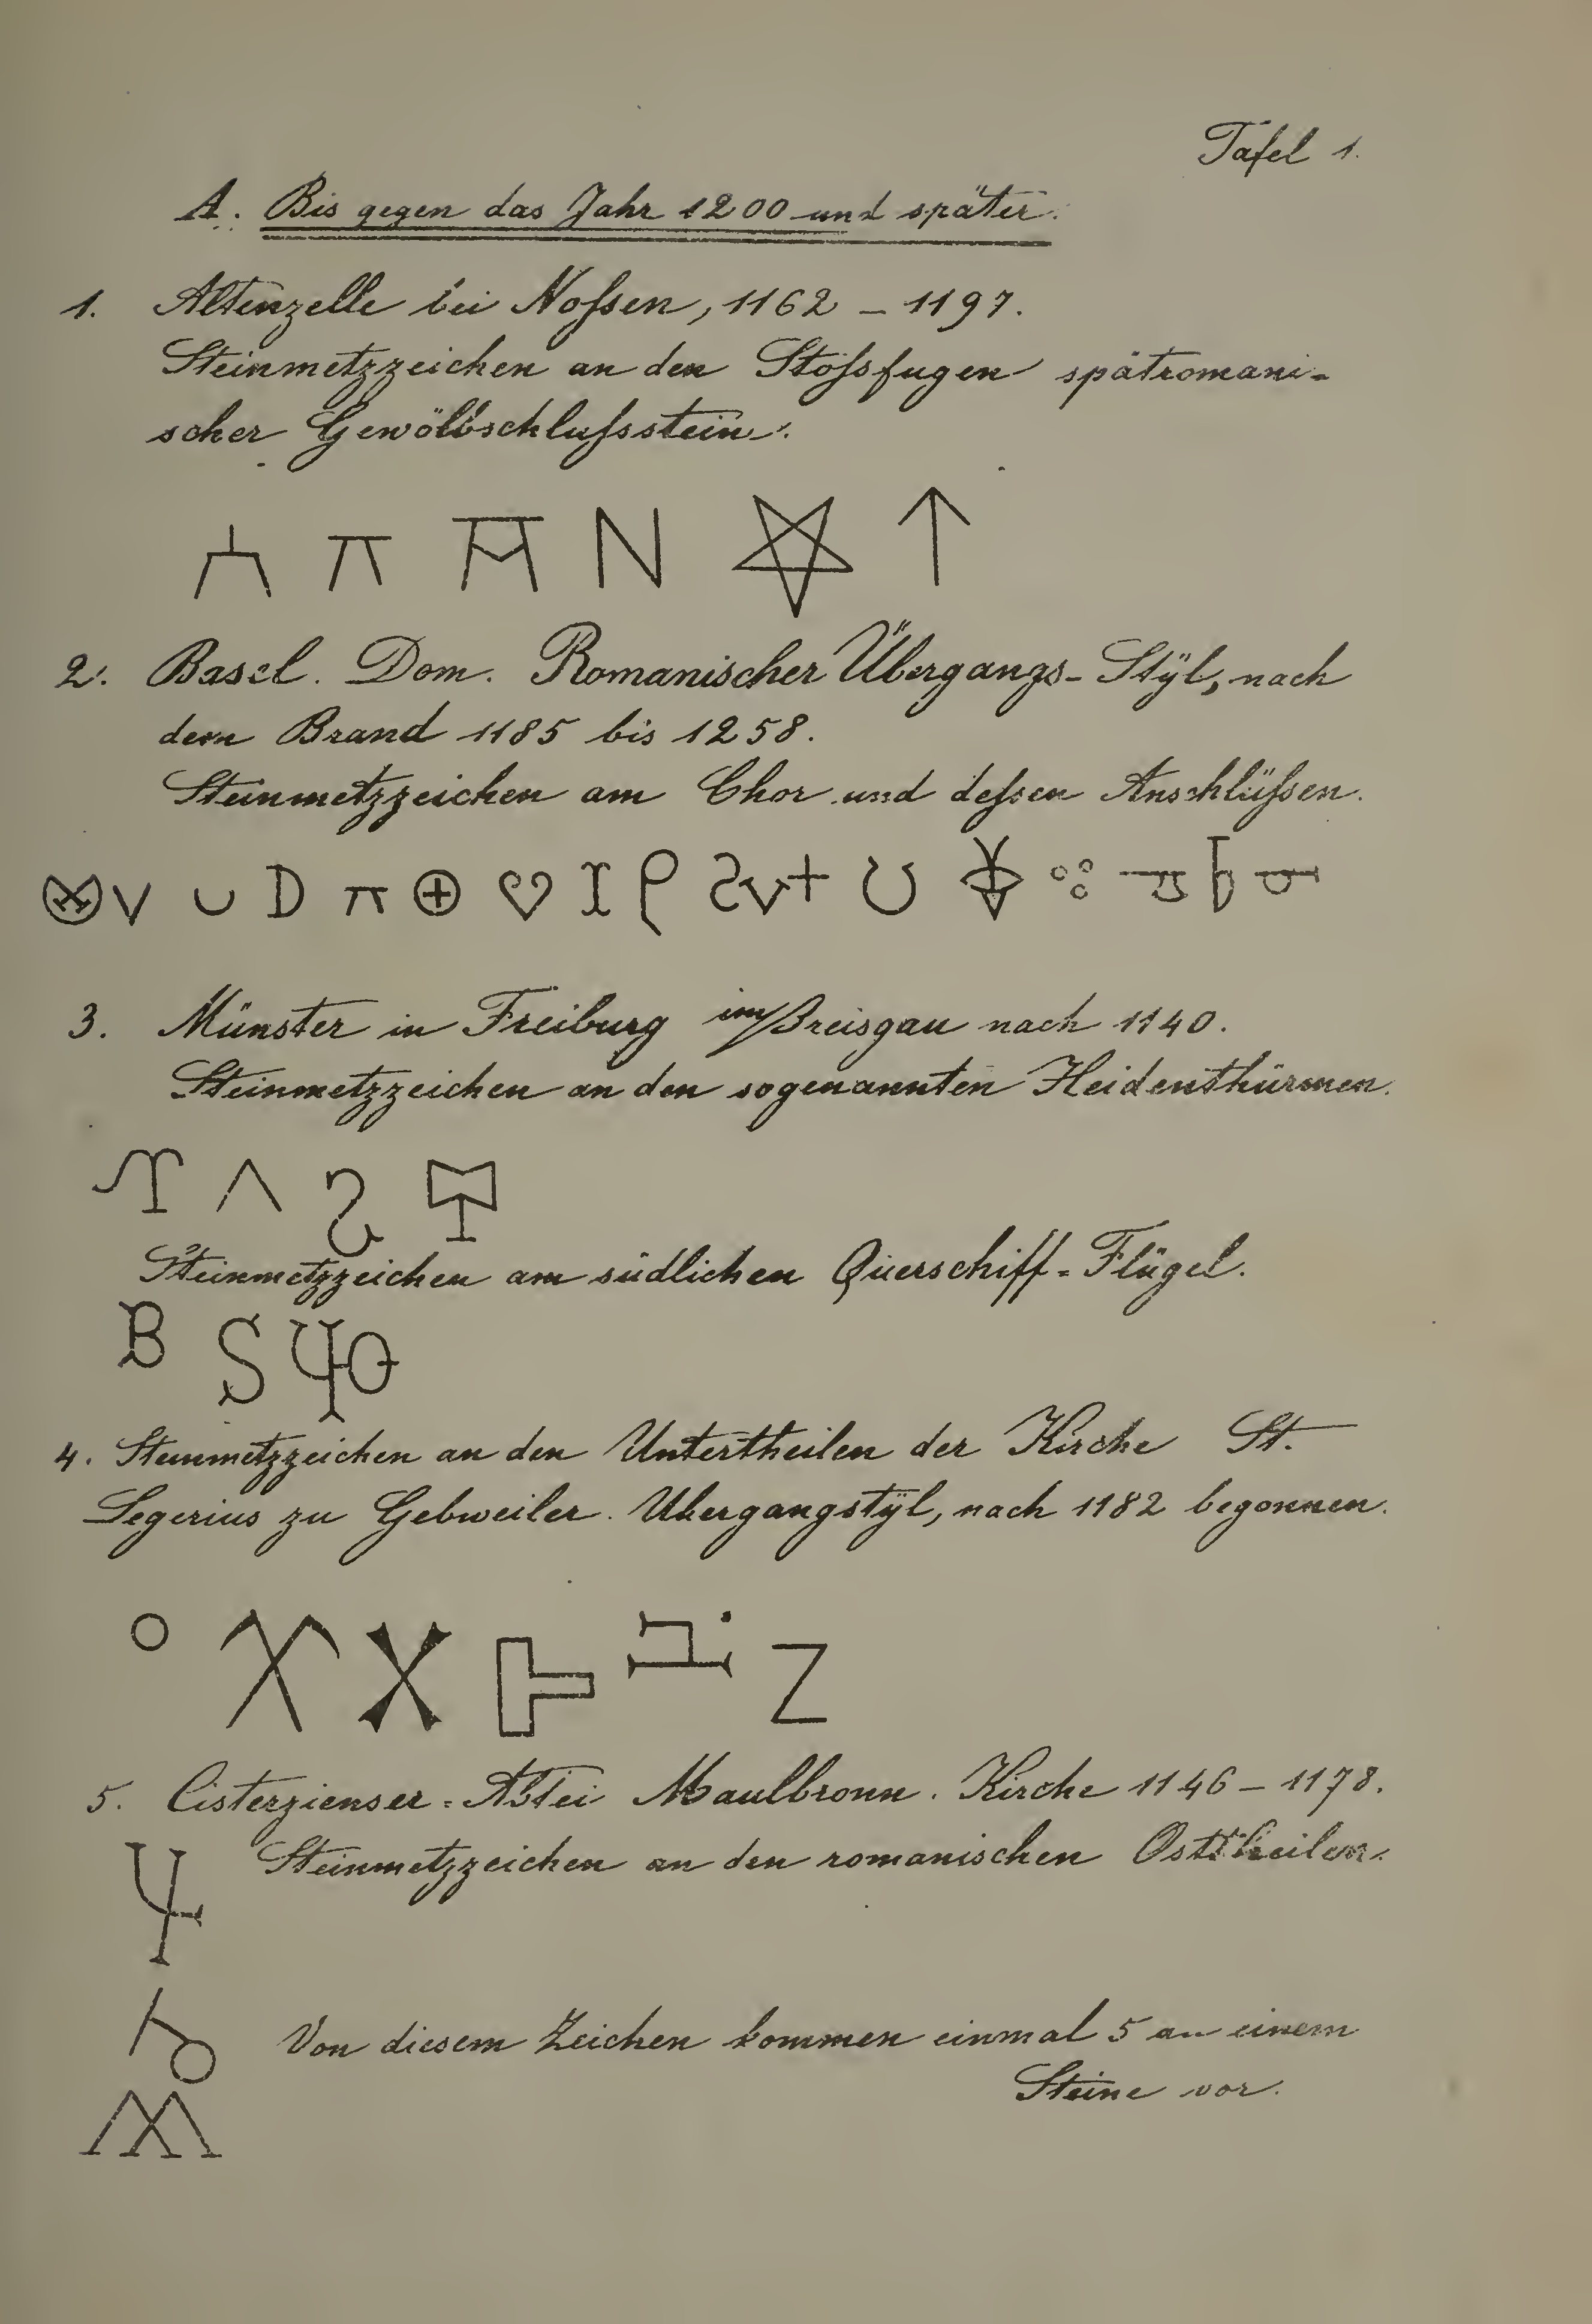 Tafel 1.
A. Bis gegen das Jahr 1200 und später.
1. Altenzelle bei Nofsen, 1162 – 1197.
Steinmetzzeichen an den Stofsfugen spätromani-
scher Gewölbschlufsstein.
2. Basel. Dom. Romanischer Übergangs-Stÿl, nach
dem Brand 1185 bis 1258.
Steinmetzzeichen am Chor und defsen Anschlüfsen.
3. Münster in Freiburg im/Breisgau nach 1140.
Steinmetzzeichen an den sogenannten Heidenthürmen.
Steinmetzzeichen am südlichen Querschiff-Flügel.
4. Steinmetzzeichen an den Untertheilen der Kirche St.
Legerius zu Gebweiler. Ubergangstÿl, nach 1182 begonnen.
5. Cisterzienser-Abtei Maulbronn. Kirche 1146 – 1178.
Steinmetzzeichen an den romanischen Osttheilen.
Von diesem Zeichen kommen einmal 5 an einem
Steine vor.